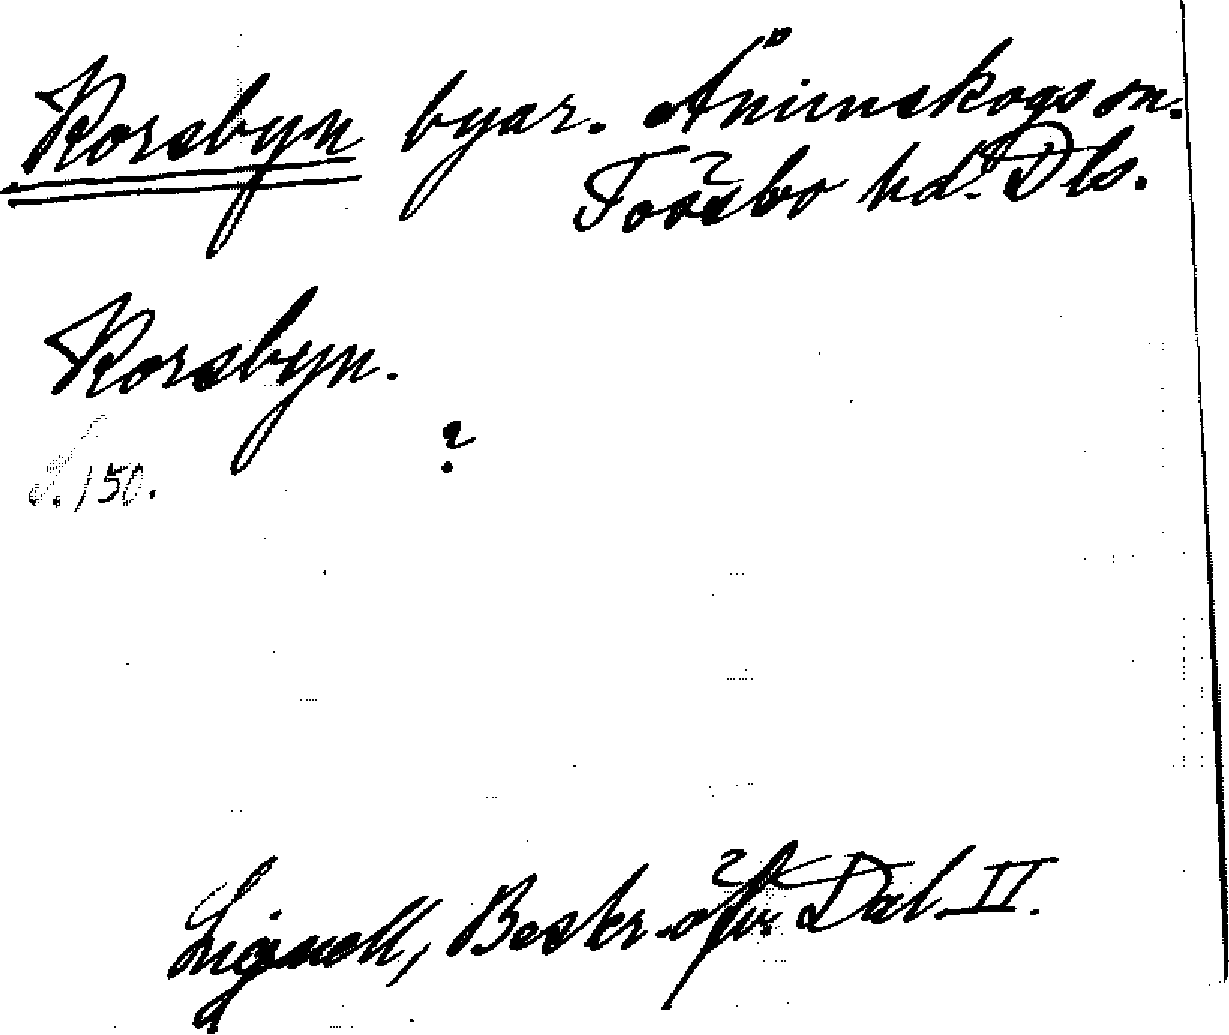 Korsbyn byar. Ånimskogs sn.
Tössbo hd. Dls.
Korsbyn.
?
S. 150.
Lignell, Beskr. öfver Dal. II.